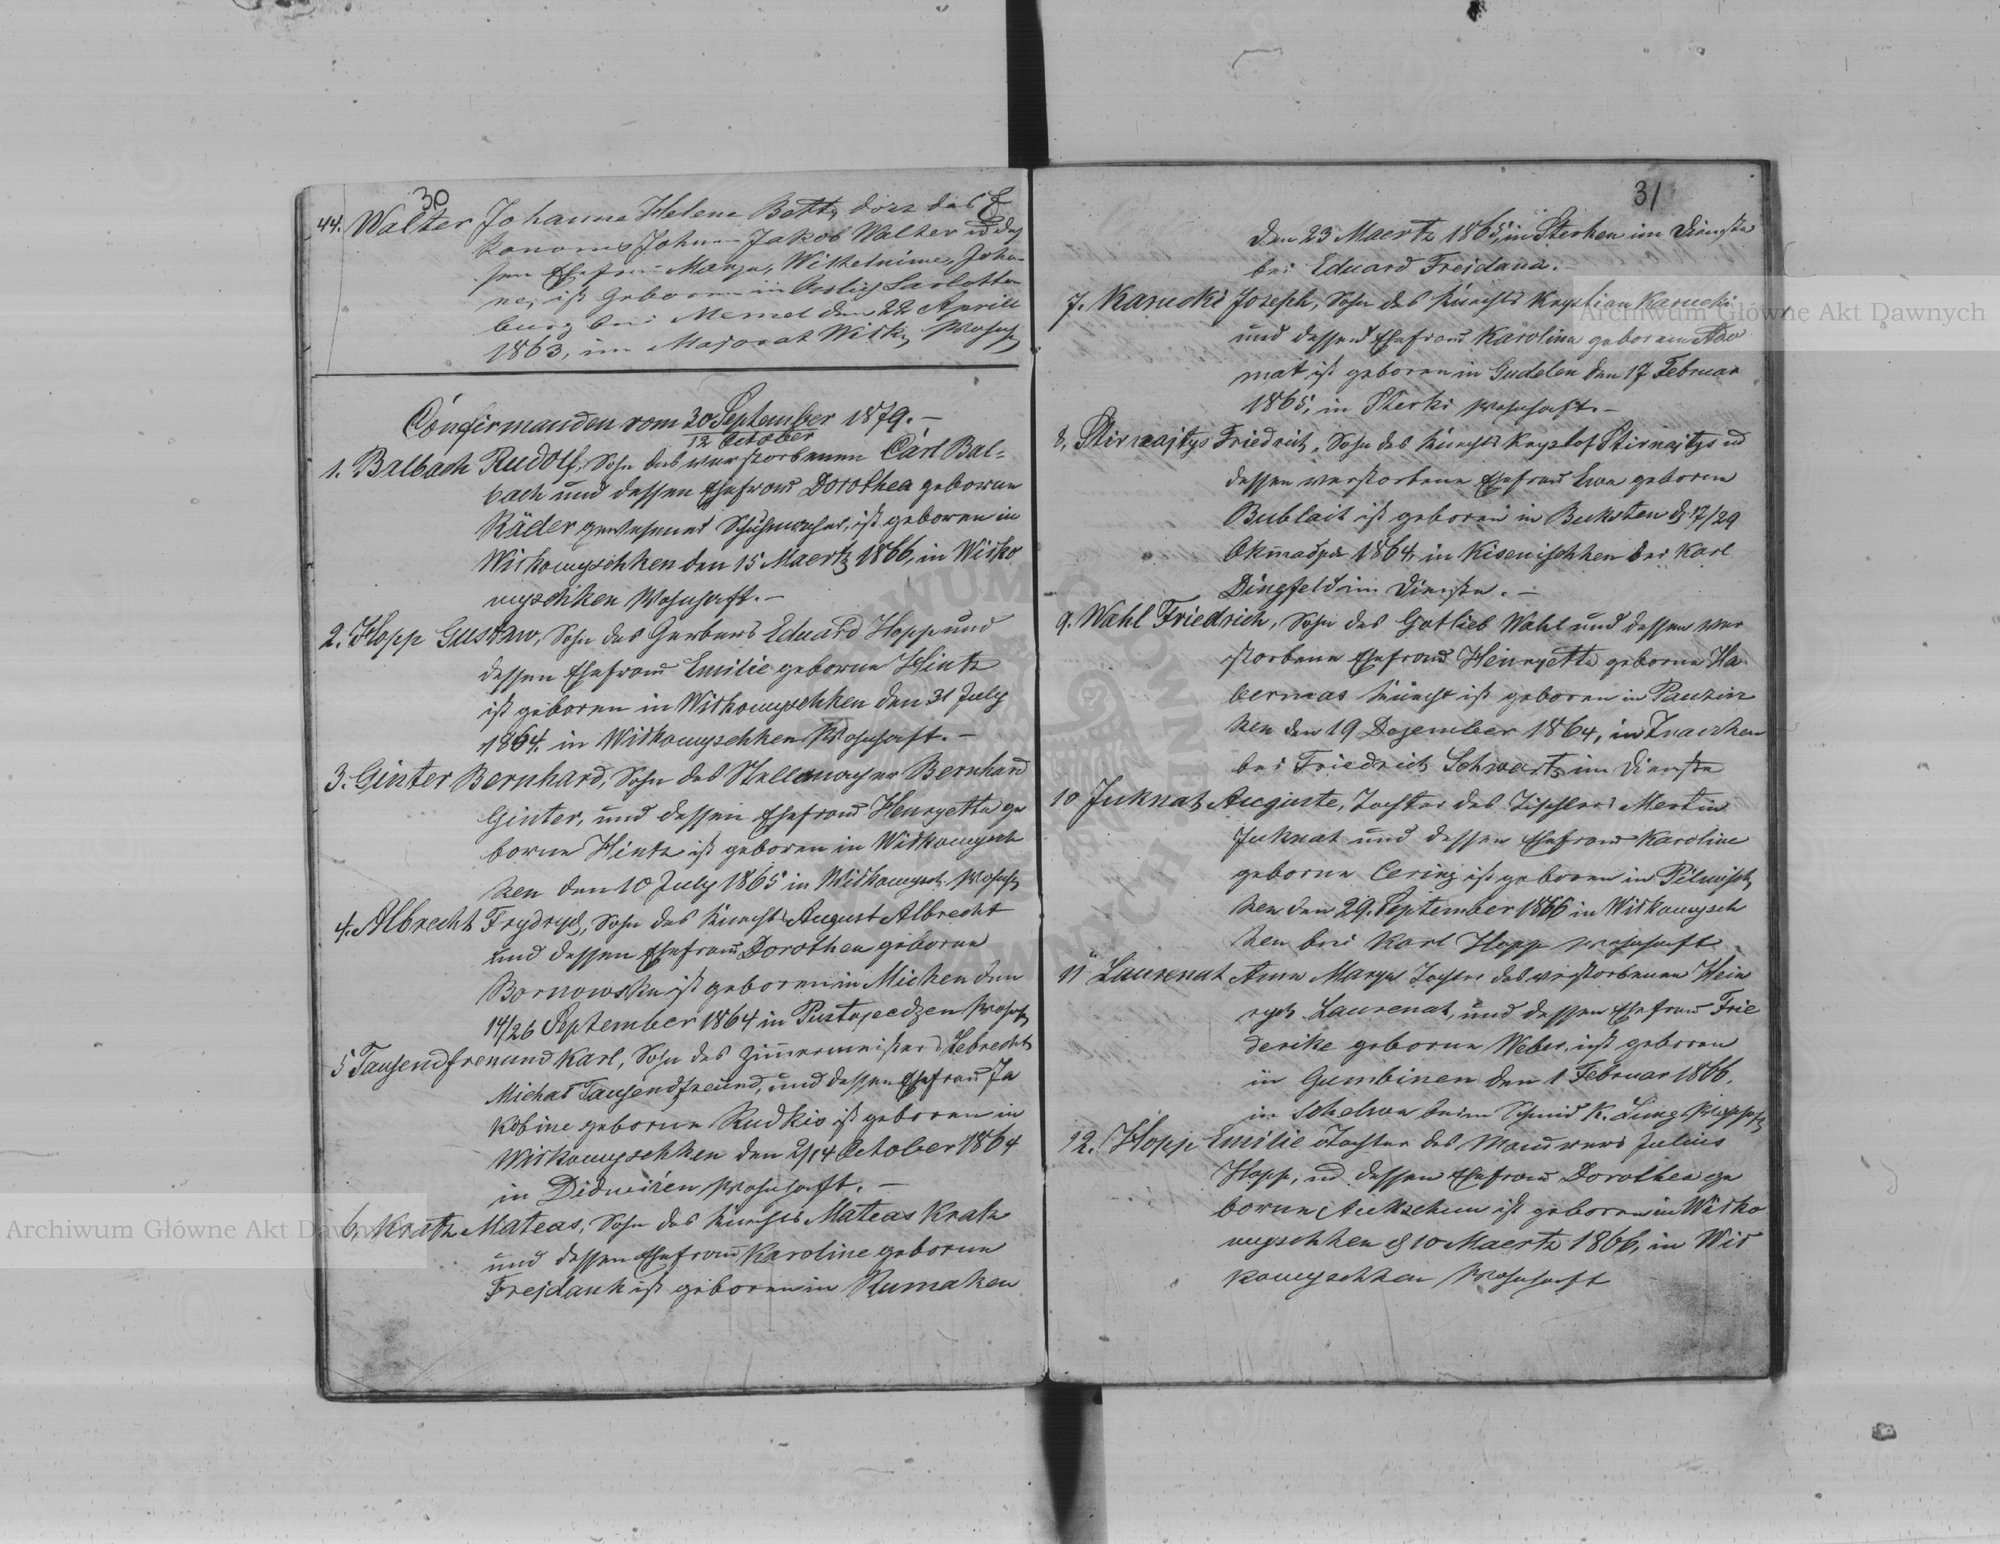 30
44. Walter Johanna Helene Betty des E
konoms Johann Jakob Walter u des
sen Ehefrau Marya, Wilhelmine, Joha-
ne, ist geboren in Carlotten
burg bei Memel den 22 Aprill
1863, im Majorat Wilky wohnh
Confirmanden vom 30 September 1879. –
12 October
1. Balbach Rudolf, Sohn des verstorbenen Carl Bal=
bach und dessen Ehefrau Dorothea geborne
Räder gewesener Schuhmacher, ist geboren in
Wirkowyschken den 15 Maertz 1866, in Wilko
wyschken wohnhaft. –
2. Hopp Gustaw, Sohn des Gerbers Eduard Hopp und
dessen Ehefrau Emilie geborne Hintz
ist geboren in Wilkowyschken den 31 July
1864. in Wilkowyschken wohnhaft. –
3. Ginter Bernhard, Sohn des Stellmacher Bernhard
Ginter, und dessen Ehefrau Henryetta ge
borne Hintz ist geboren in Wilkowysch
ken den 10 July 1865 in Wilkowysch. wohnh
4. Albrecht Frydrych, Sohn des Knechts August Albrecht
und dessen Ehefrau Dorothea geborne
Bornowska ist geboren in Micken den
14/26 September 1864 in Pustopedzen wohnh
5 Tausendfreuund Karl, Sohn des Zimmermeisters Lebrecht
Michael Tausendfreund, und dessen Ehefrau Ja
kobine geborne Rudkio ist geboren in
Wilkowyschken den 2/14 October 1864
in Didwiren wohnhaft. –
6. Kratz Mateas, Sohn des Knechts Mateas Kratz
und dessen Ehefrau Karoline geborne
Frejdank ist geboren in Rumaken
31
den 23 Maertz 1865, in Sterken im Dienste
bei Eduard Frejdank. –
7. Karucki Joseph, Sohn des Knechts Krystian Karucki
und dessen Ehefrau Karolina geboren Ado
mat ist geboren in Gudelen den 17 Februar
1865, in Sterki wohnhaft. –
8. Stirnajtys Friedrich, Sohn des Knechts Krysztof Stirnajtys ud
dessen verstorbene Ehefrau Ewa geboren
Bublait ist geboren in Buksten d 17/29
1864 in Kisenischken bei Karl
Dingfeld im Dienste. –
9. Wahl Friedrich, Sohn des Gotlieb Wahl und dessen ver
storbene Ehefrau Henryetta geborne Ha
bermas Knecht ist geboren in Pauzin
ken den 19 Dezember 1864, in
bei Friedrich Schwartz im Dienste
10 Juknat Auguste, Tochter des Tischlers Mertin
Juknat und dessen Ehefrau Karoline
geborne Cering ist geboren in Pilwisch
ken den 29. September 1866 in Wilkowysch
ken bei Karl Hopp wohnhaft
11 Laurenat Anna Marya Tochter des verstorbenen Hein
rych Laurenat, und dessen Ehefrau Frie
derike geborne Weber, ist geboren
in Gumbinen den 1 Februar 1866.
in Schelwa beim Schmid K. Lung
12. Hopp Emilie Tochter des Maurers Julius
Hopp, ud dessen Ehefrau Dorothea ge
borne ist geboren in Wilko
wyschken d 10 Maertz 1866, in Wil
kowyschken wohnhaft
Archiwum Główne Akt Dawnych
Archiwum Główne Akt Dawnych